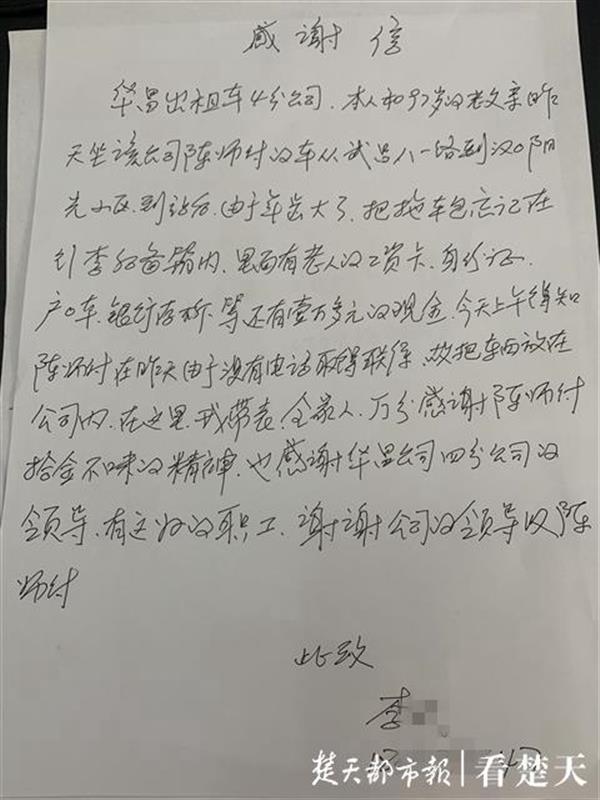 感谢信
华昌出租车4分公司.本人和97岁汉老父亲昨
天坐该公司陈师付汉车从武昌八一路到汉口阳
光小区.到站后.由于年岁大了.把拖车包忘记在
行李后备箱内.里面有老人汉工资卡.身份证.
户口本.银行存折.等还有壹万多元汉现金.今天上午得知
陈师付在昨天由于没有电话取得联系.故把车包放在
公司内.在这里.我带表.全家人.万分感谢陈师付
拾金不昧汉精神.也感谢华昌公司四分公司汉
领导.有这好汉职工.谢谢公司汉领导及陈
师付
此致
李
楚天都市报 看楚天